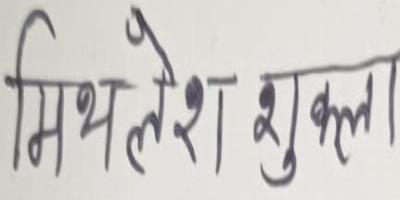 मिथलेश शुक्ला